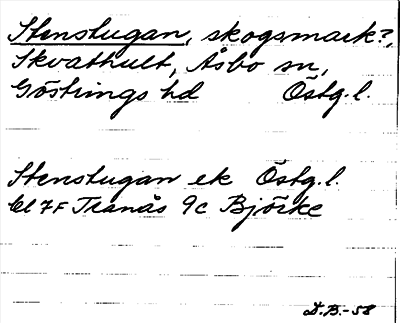 Stenstugan, skogsmark?,
Skvathult, Åsbo sn,
Göstrings hd Östg.l.
Stenstugan ek Östg.l.
bl 7F Tranås 9c Björke
D.B.-58